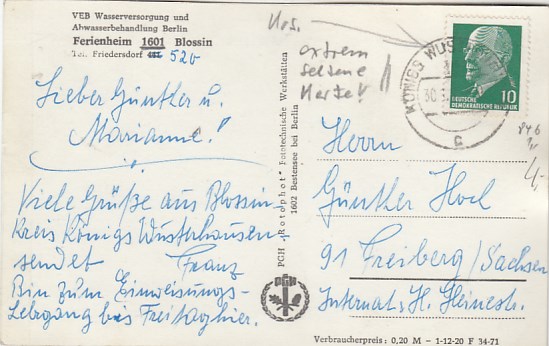 VEB Wasserversorgung und
Abwasserbehandlung Berlin
Ferienheim 1601 Blossin
Tel. Friedersdorf 520
Lieber Günther u.
Marianne!
Viele Grüße aus Blossin
Kreis Königs Wusterhausen
sendet Franz
Bin zum Einweisungs-
Lehrgang bis Freitag hier.
PGH „Rotophot“ Fototechnische Werkstätten
1602 Bestensee bei Berlin
PGH
extrem
seltene
Marke!
KÖNIGS WUST
30.
c
DEUTSCHE
DEMOKRATISCHE REPUBLIK
10
846
4,-
Herrn
Günther Hock
91 Freiberg/Sachsen
Internat, H. Heinestr.
Verbraucherpreis: 0,20 M - 1-12-20 F 34-71